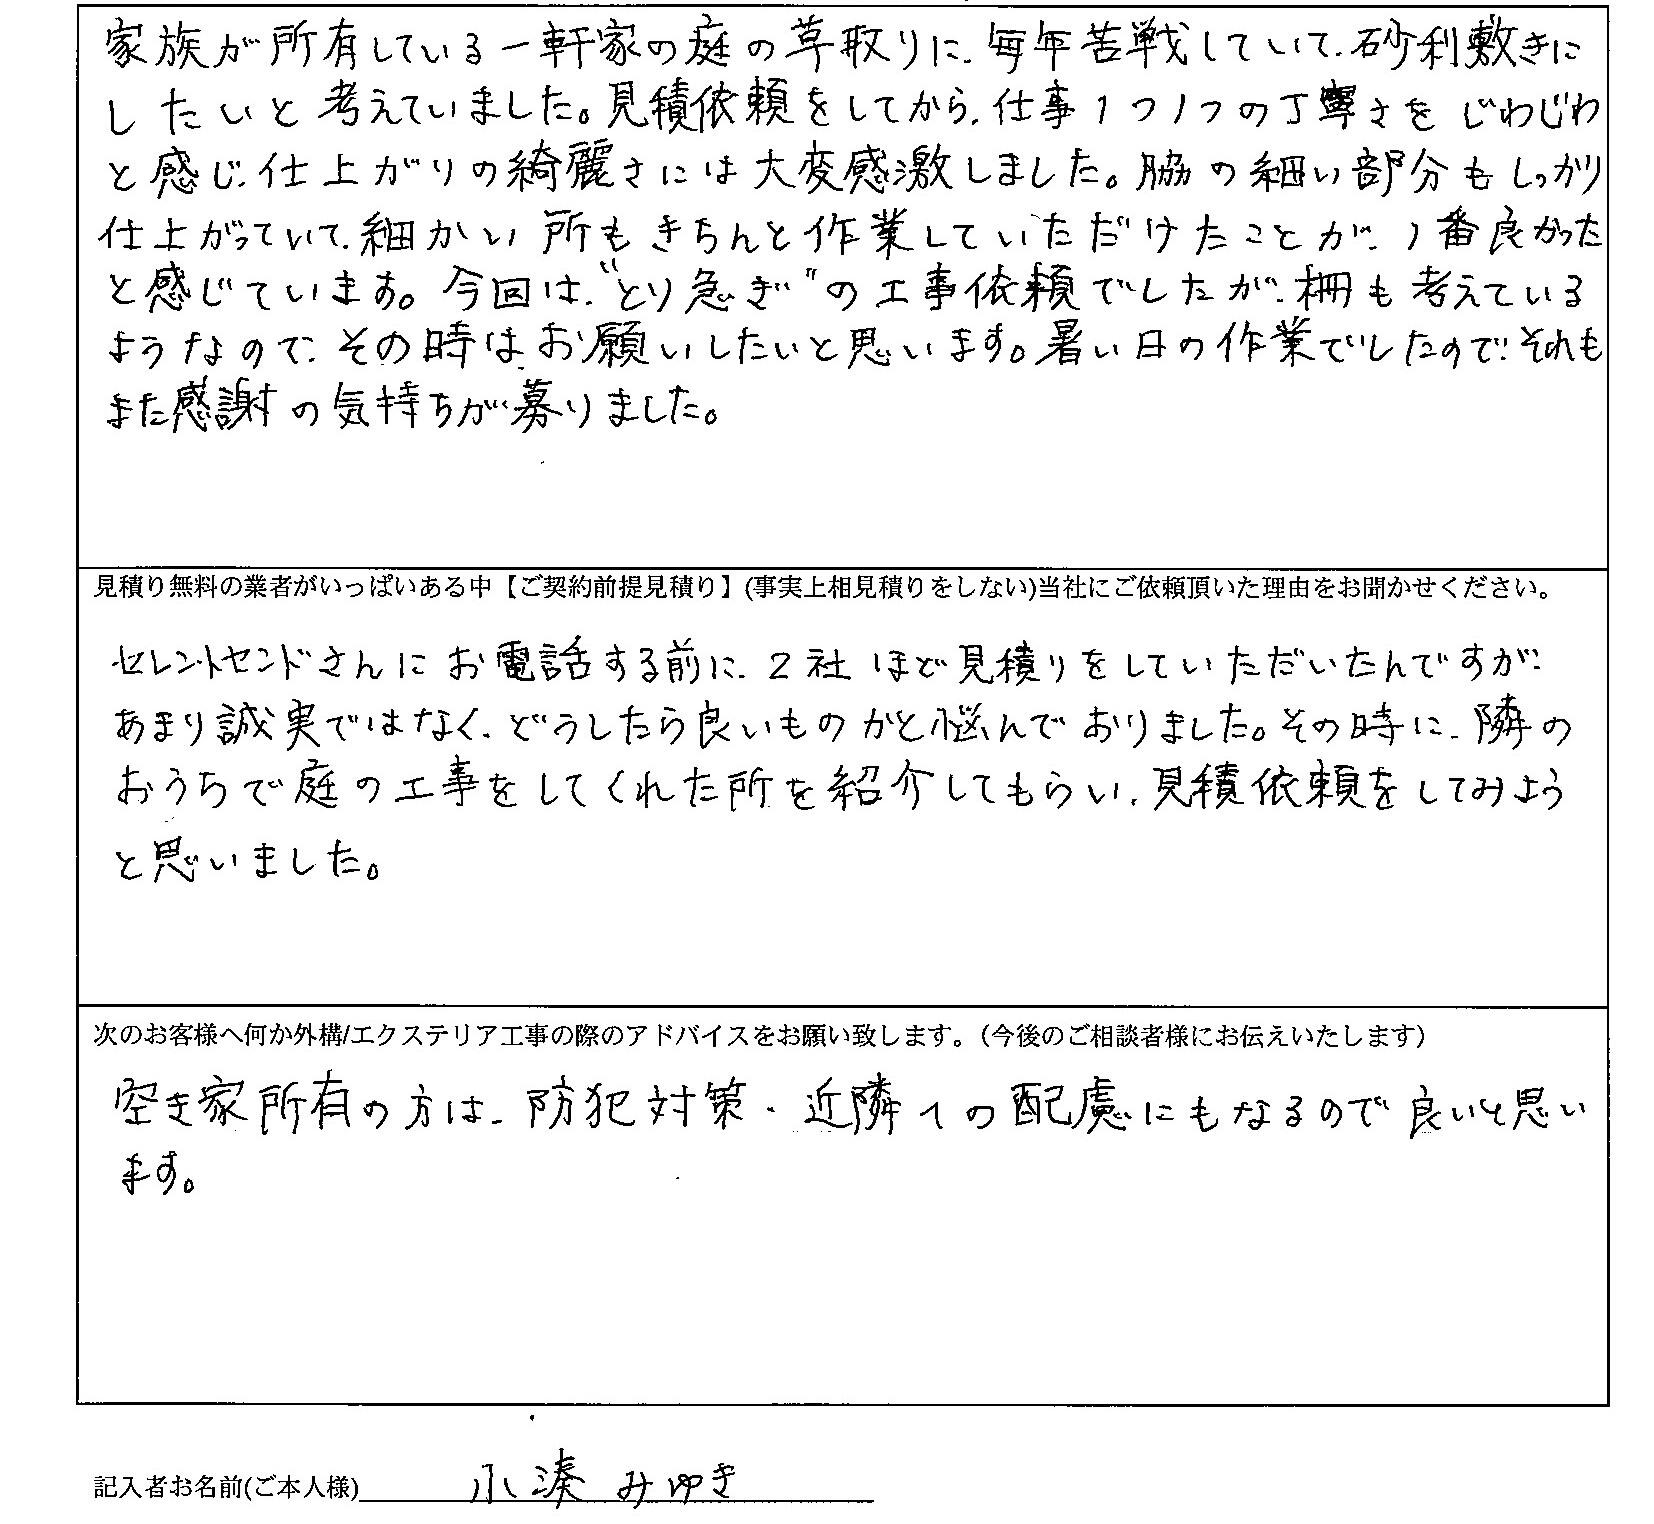 家族が所有している一軒家の庭の草取りに、毎年苦戦していて、砂利敷きに
したいと考えていました。見積依頼をしてから、仕事1つ1つの丁寧さをじわじわ
と感じ、仕上がりの綺麗さには大変感激しました。脇の細い部分もしっかり
仕上がっていて、細かい所もきちんと作業していただけたことが、1番良かった
と感じています。今回は、"とり急ぎ"の工事依頼でしたが、柵も考えている
ようなので、その時はお願いしたいと思います。暑い日の作業でしたので、それも
また感謝の気持ちが募りました。
見積り無料の業者がいっぱいある中【ご契約前提見積り】(事実上相見積りをしない)当社にご依頼頂いた理由をお聞かせください。
セレントセンドさんにお電話する前に、2社ほど見積りをしていただいたんですが、
あまり誠実ではなく、どうしたら良いものかと悩んでおりました。その時に、隣の
おうちで庭の工事をしてくれた所を紹介してもらい、見積依頼をしてみよう
と思いました。
次のお客様へ何か外構/エクステリア工事の際のアドバイスをお願い致します。（今後のご相談者様にお伝えいたします）
空き家所有の方は、防犯対策・近隣への配慮にもなるので良いと思い
ます。
記入者お名前(ご本人様) 小湊 みゆき